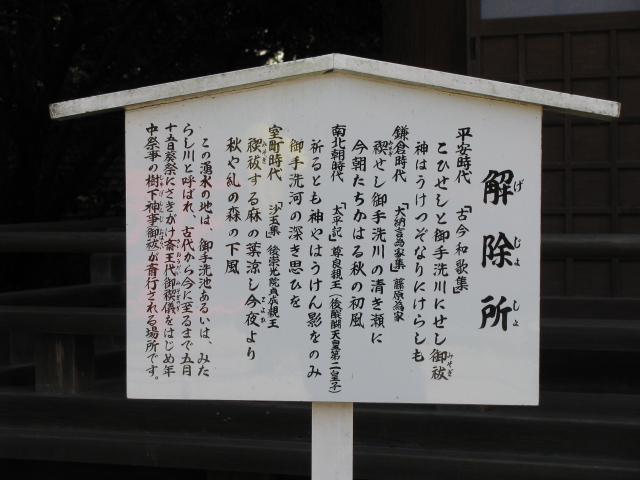 解除所
げ じょ しょ
平安時代 「古今和歌集」
こひせしと御手洗川にせし御祓
みそぎ
神はうけつぞなりにけらしも
鎌倉時代 「大納言為家集」 藤原為家
禊せし御手洗川の清き瀬に
今朝たちかはる秋の初風
南北朝時代 「太平記」 尊良親王(後醍醐天皇第二皇子)
祈るとも神やはうけん影をのみ
御手洗河の深き思ひを
室町時代 「沙玉集」 後崇光院貞成親王
禊祓する麻の葉涼し今夜より
みそぎ こよひ
秋や乱の森の下風
この湧水の地は、御手洗池あるいは、みた
らし川と呼ばれ、古代から今に至るまで五月
十五日葵祭にさきがけ斎王代御禊儀をはじめ年
中祭事の樹下神事御祓が斎行される場所です。